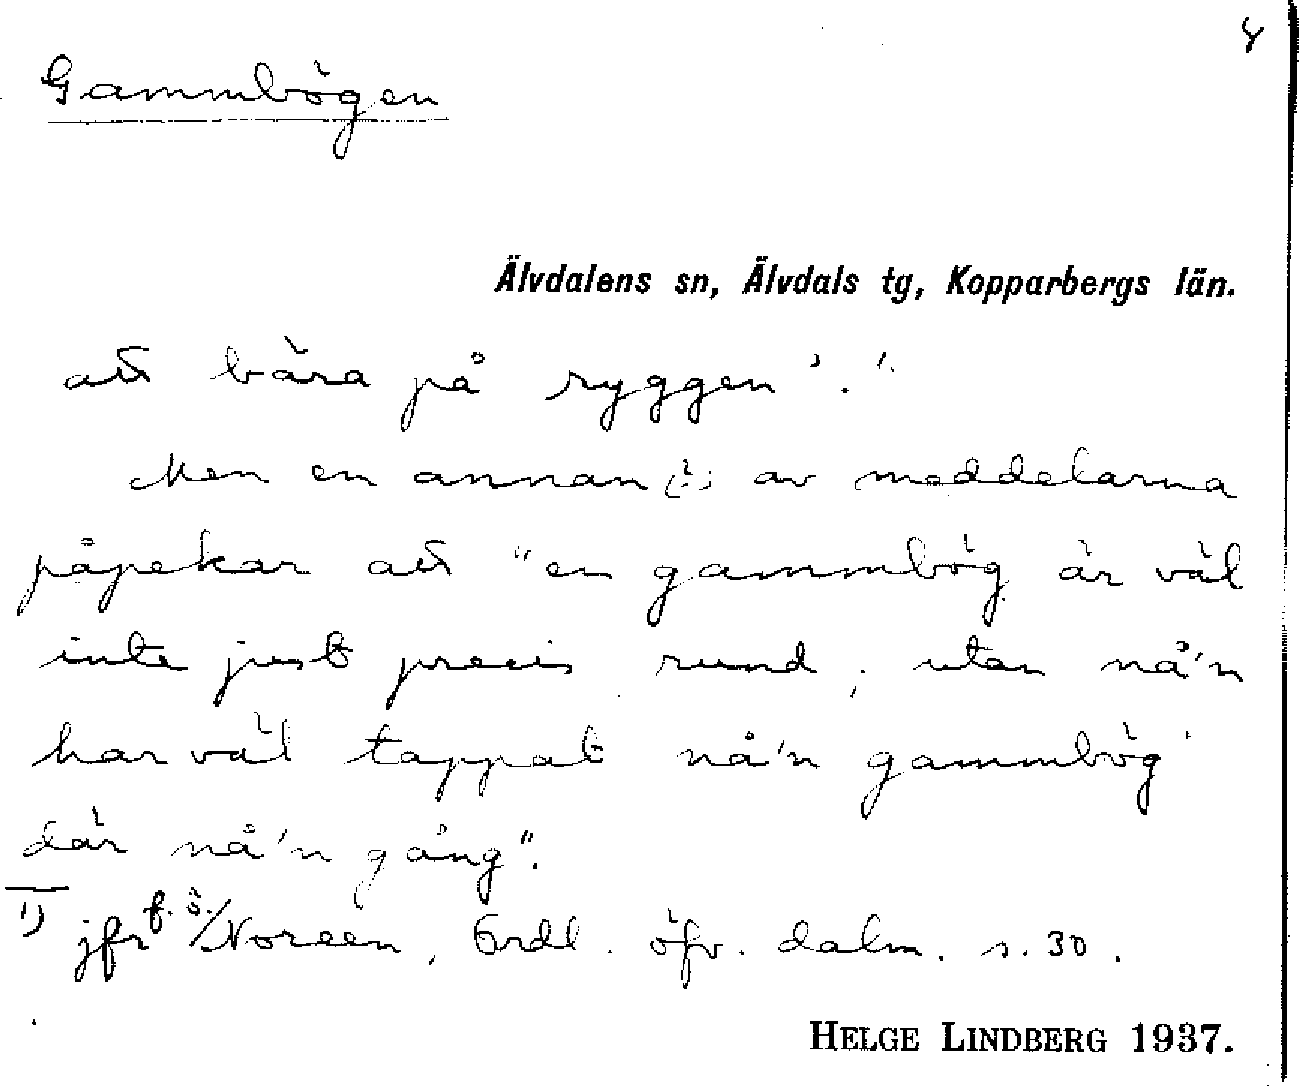 Gammbögen
Älvdalens sn, Älvdals tg, Kopparbergs län.
att bära på ryggen'."
Men en annan av meddelarna
påpekar att "en gammbög är väl
inte just precis rund, utan nå'n
har väl tappat nå'n gammbög
där nå'n gång".
1) jfr f. ö. Noreen, Ordl. öfv. dalm. s. 30.
HELGE LINDBERG 1937.